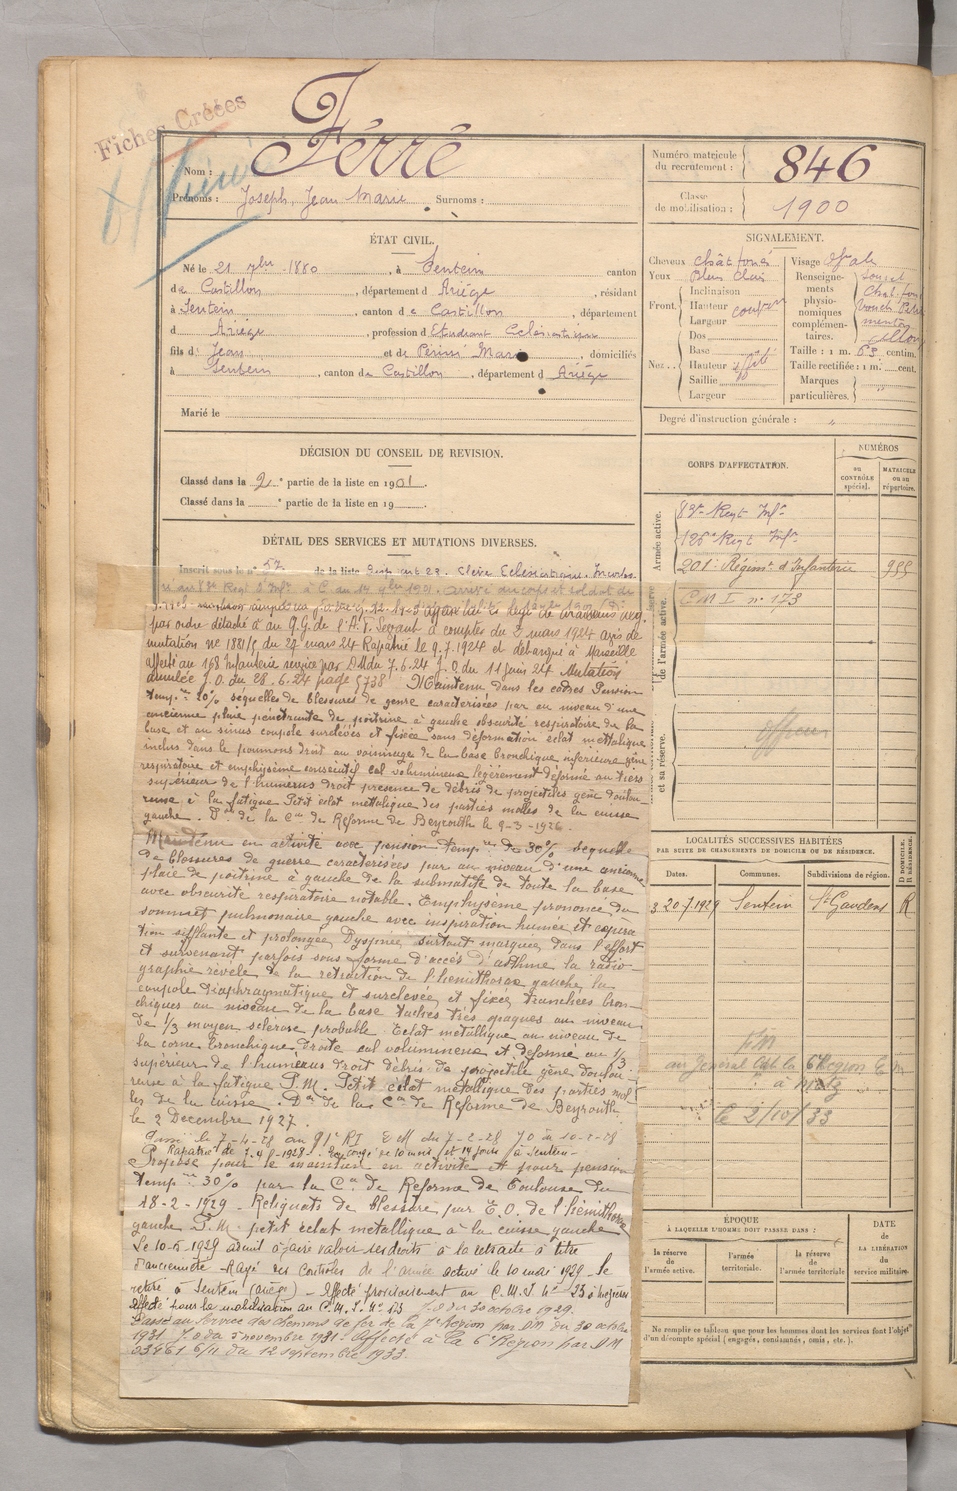 Fiches Créées
Nom : Ferré
Prénoms : Joseph, Jean Marie Surnoms :
Numéro matricule du recrutement : 846
Classe de mobilisation : 1900
ÉTAT CIVIL.
Né le 21 7bre 1880, à Sentein canton
de Castillon, département d Ariège, résidant
à Sentein, canton de Castillon, département
d Ariège, profession d Etudiant Eclésiastique
fils d Jean et de domiciliés
à Sentein, canton de Castillon, département d Ariège
Marié le
SIGNALEMENT.
Cheveux chât foncé Visage
Yeux Bleu clair Renseignements physionomiques complémentaires.
Front. Inclinaison
Hauteur
Largeur
Nez.. Dos
Base
Hauteur
Saillie
Largeur
Taille : 1 m. 63 centim.
Taille rectifiée : 1 m. cent.
Marques particulières.
Degré d'instruction générale : "
DÉCISION DU CONSEIL DE REVISION.
Classé dans la 2e partie de la liste en 1901
Classé dans la e partie de la liste en 19
DÉTAIL DES SERVICES ET MUTATIONS DIVERSES.
Inscrit sous le n° 57 de la liste
par ordre détaché à au Q.G. de l'A.F. Levant à compter du 3 mars 1924 avis de
mutation no 1881/5 du 27 mars 24 Rapatrié le 9.7.1924 et débarqué à Marseille
affecté au 168 Infanterie service par DM du 7.6.24 J.O. du 11 juin 24 Mutation
annulée J.O. du 28.6.24 page 5738 Maintenu dans les cadres Pension
temp.re 20% séquelles de blessures de guerre caractérisées par au niveau d'une
ancienne plaie pénétrante de poitrine à gauche obscurité respiratoire de la
base et au sinus coupole surélevés et fixée sans déformation éclat métallique
inclus dans le poumons droit au voisinage de la base bronchique inférieure gêne
respiratoire et emphysème consécutif cal volumineux légèrement déformé au tiers
supérieur de l'humérus droit présence de débris de projectiles gêne doulou
reuse à la fatigue Petit éclat métallique des parties molles de la cuisse
gauche. Don de la Con de Réforme de Beyrouth le 9-3-1926.
Maintenu en activité avec pension temp.re de 30% séquelle
de blessures de guerre caractérisées par au niveau d'une ancienne
plaie de poitrine à gauche de la submatité de toute la base
avec obscurité respiratoire notable. Emphysème prononcé du
sommet pulmonaire gauche avec inspiration humée et expira
tion sifflante et prolongée Dyspnée surtout marquée dans l'effort
et survenant parfois sous forme d'accès d'asthme la radio-
graphie révèle de la rétraction de l'hémithorax gauche, la
coupole diaphragmatique et surélevée et fixée tranchées bron-
chiques au niveau de la base taches très opaques au niveau
de 1/3 moyen sclérose probable. Eclat métallique au niveau de
la corne bronchique droite cal volumineux et déformé au 1/3
supérieur de l'humérus droit débris de projectile gêne doulou-
reuse à la fatigue P.M. Petit éclat métallique des parties mol
les de la cuisse. Don de la Con de Réforme de Beyrouth
le 2 Décembre 1927.
le 7-4-28 au 91e RI DM du 7-2-28 JO du 10-2-28
Rapatrié de 7-4-1928. En congé de 10 mois et 14 jours à Sentein
Proposé pour le maintien en activité et pour pension
temp.re 30% par la Con de Réforme de Toulouse du
18-2-1929 - Reliquats de blessure par E.O. de l'hémithorax
gauche P.M. petit éclat métallique à la cuisse gauche
Le 10-5-1929 admis à faire valoir ses droits à la retraite à titre
d'ancienneté - Rayé des contrôles de l'armée active le 10 mai 1929. Se
retire à Sentein (Ariège) - Affecté provisoirement au C.M.I. n°
Affecté pour la mobilisation au C.M.I. N° 173 J.O du 30 octobre 1929.
Passé au service des chemins de fer de la 7e Région par DM du 30 octobre
1931 J.O du 5 novembre 1931. Affecté à la 6e Région par DM
03461 6/11 du 12 septembre 1933.
CORPS D'AFFECTATION.
NUMÉROS
DU CONTRÔLE spécial.
MATRICULE ou au répertoire.
Armée active.
83e Regt Infie
126e Regt Infie
201e Régimt d'Infanterie
C M I n° 173
de l'armée active.
et sa réserve.
officier
LOCALITÉS SUCCESSIVES HABITÉES
PAR SUITE DE CHANGEMENTS DE DOMICILE OU DE RÉSIDENCE.
Dates. Communes. Subdivisions de région. D DOMICILE. R RÉSIDENCE.
20.7.1929 Sentein St Gaudens R
au Général 6e Région
à Metz
le 2/10/33
ÉPOQUE
À LAQUELLE L'HOMME DOIT PASSER DANS :
la réserve de l'armée active.
l'armée territoriale.
la réserve de l'armée territoriale.
DATE de LA LIBÉRATION du service militaire.
Ne remplir ce tableau que pour les hommes dont les services font l'objet
d'un décompte spécial (engagés, condamnés, omis, etc.).